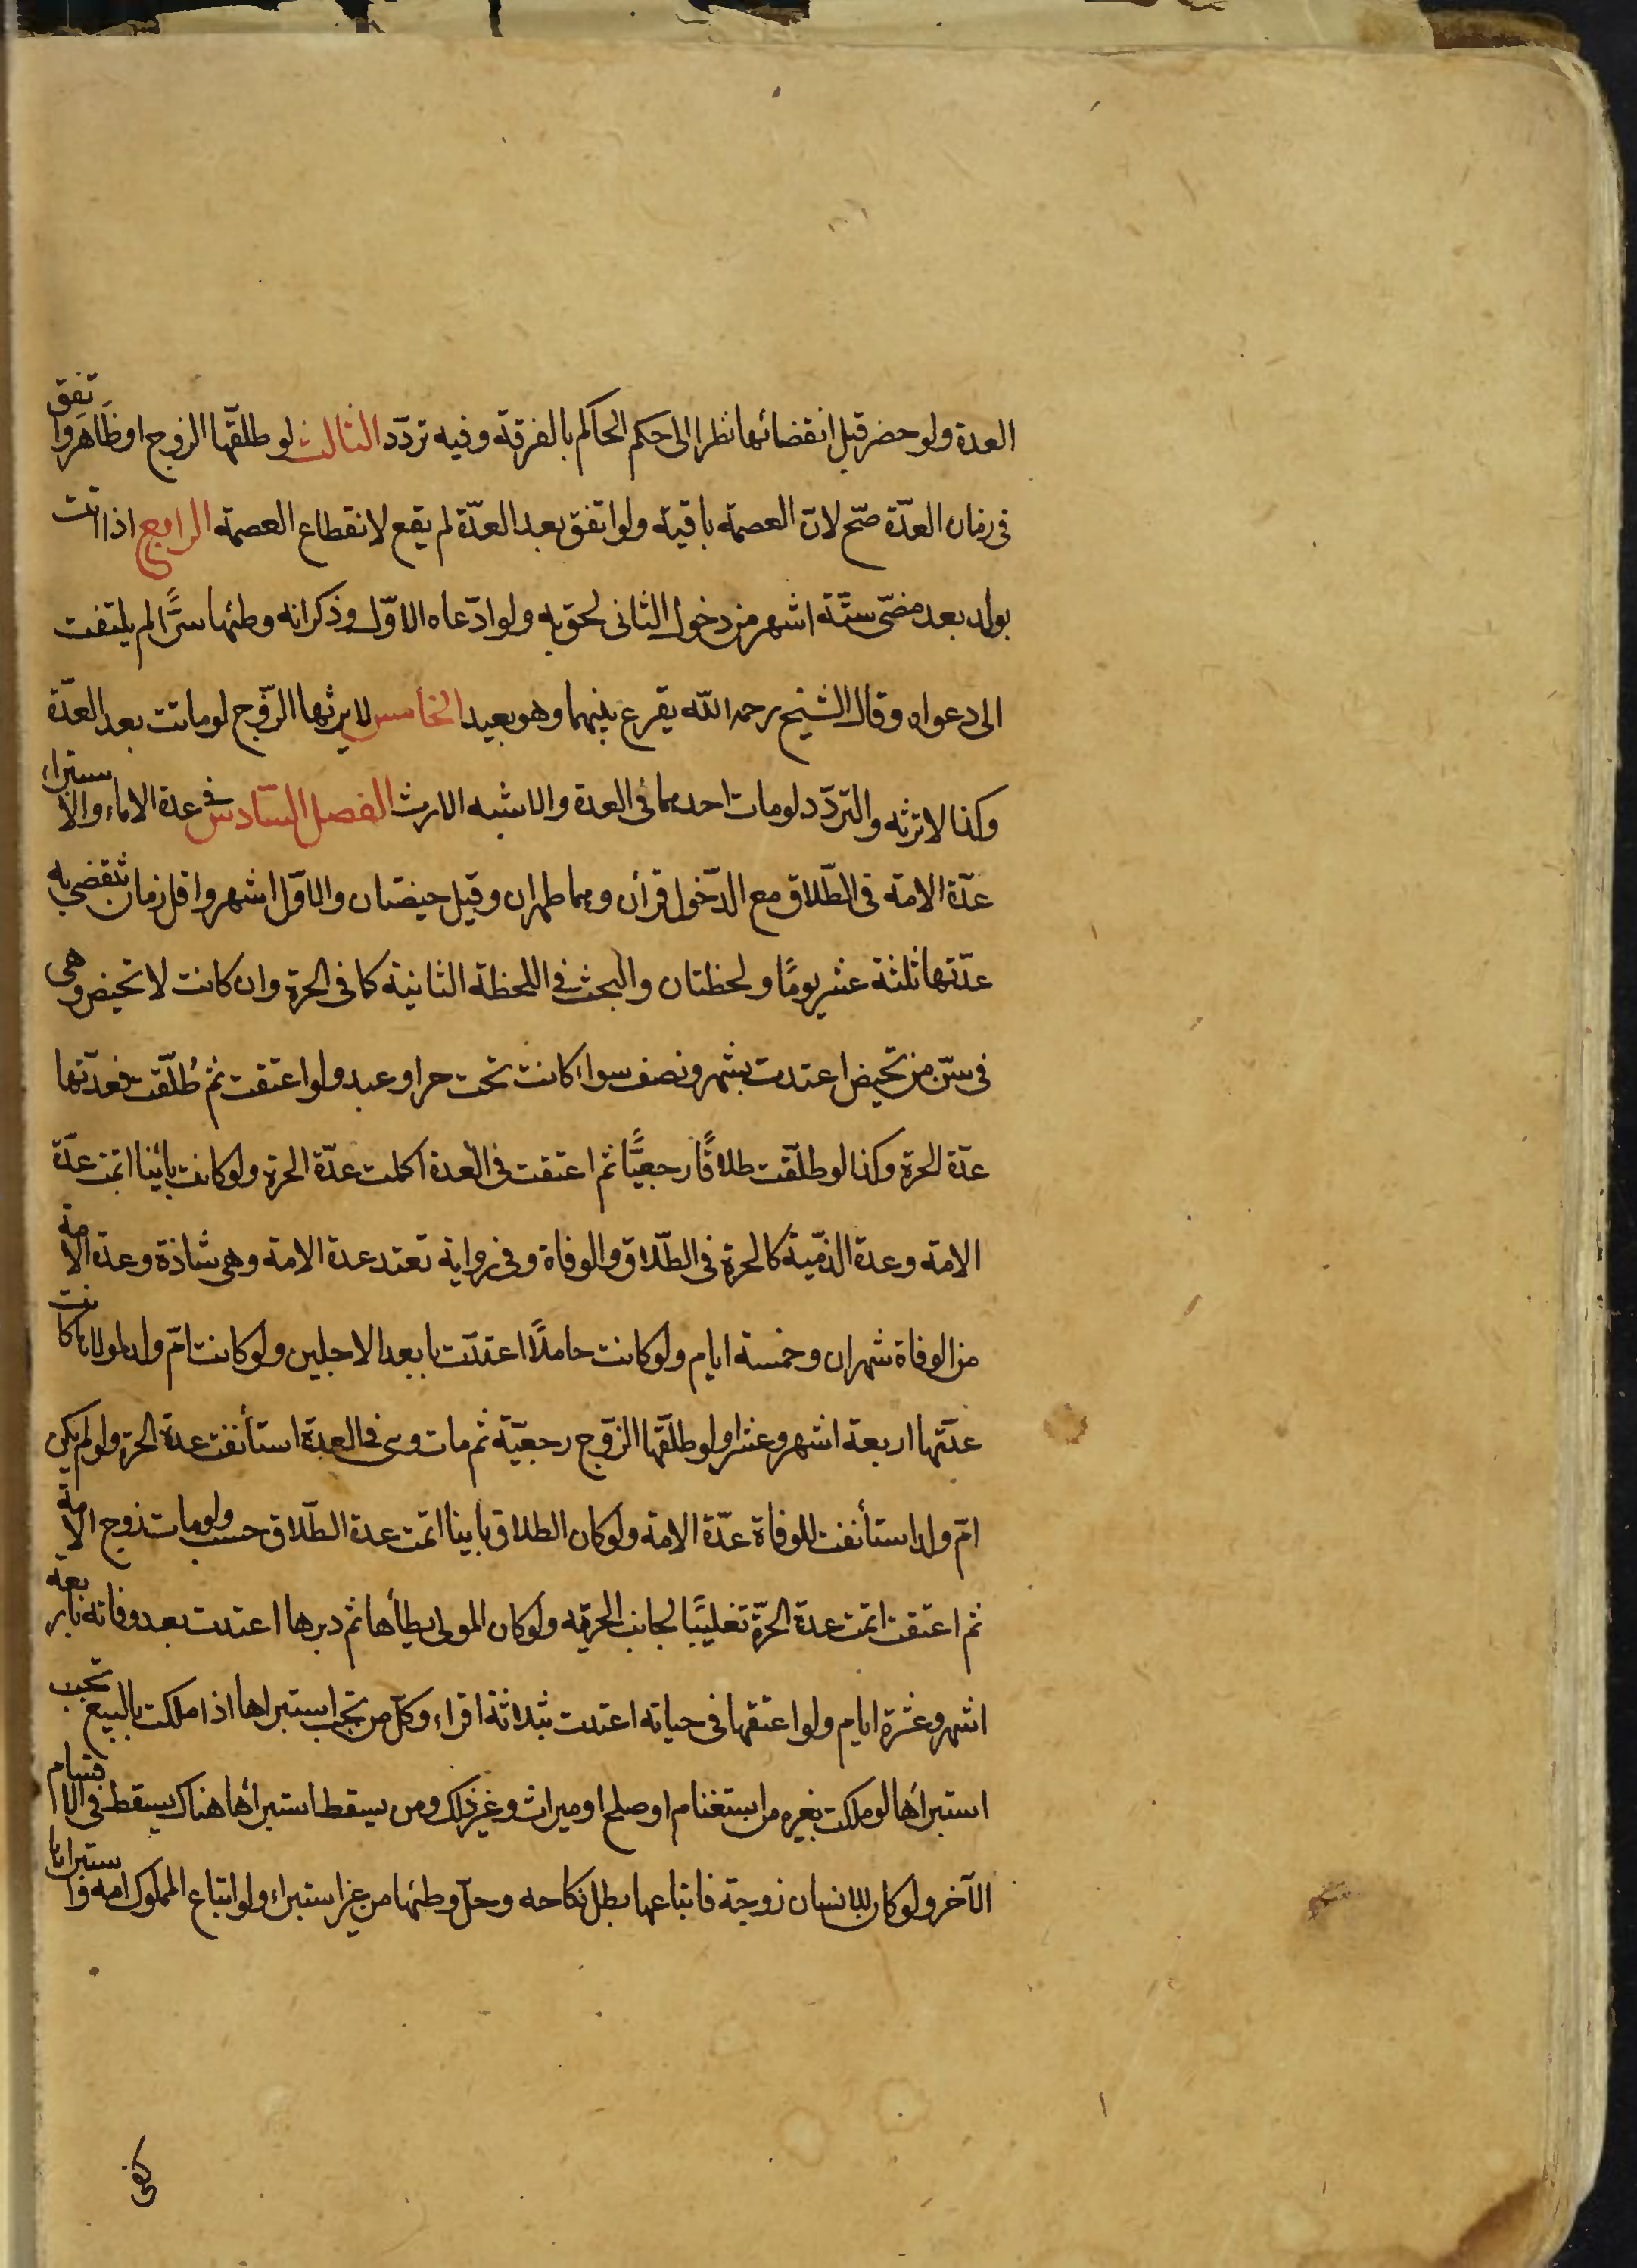 العدة ولو حضر قبل انقضائها نظرا الى حكم الحاكم بالفرقة وفيه تردّد الثالث لو طلقّها الزوج او ظاهر واتفق
فى زمان العدّة صّح لانّ العصمة باقية ولو اتفق بعد العدّة لم يقع لانقطاع العصمة الرابع اذا اتت
بولد بعد مضىّ ستّة اشهر من دخول الثانى لحق به ولو ادّعاه الاوّل وذكر انه وطئها سرًّا لم يلتفت
الى دعواه وقال الشيخ رحمه اللّه يقرع بينهما وهو بعيد الخامس لا يرثها الزّوج لو ماتت بعد العدّة
وكذا لا ترثه والتردّد لو مات احدهما فى العدة والاشبه الارث الفصل السّادس فى عدة الاماء والاستبراء
عدّة الامة فى الطّلاق مع الدّخول قرأن وهما طهران وقيل حيضتان والاوّل اشهر واقل زمان تنقضى به
عدّتها ثلثة عشر يومًا ولحظتان والبحث فى اللحظة الثانية كما فى الحرة وان كانت لا تحيض وهى
فى سنّ من تحيض اعتدت بشهر ونصف سواء كانت تحت حر او عبد ولو اعتقت ثم طُلّقت فعدّتها
عدّة الحرة وكذا لو طلّقت طلاقًا رجعيًّا ثم اعتقت فى العدة اكملت عدّة الحرة ولو كانت بائنا اتمت عدّة
الامة وعدة الذمّية كالحرة فى الطّلاق والوفاة وفى رواية تعتد عدة الامة وهى شاذة وعدة الامة
من الوفاة شهران وخمسة ايام ولو كانت حاملًا اعتدّت بابعد الاجلين ولو كانت امّ ولد لمولاها كانت
عدّتها اربعة اشهر وعشرا ولو طلّقها الزّوج رجعيّة ثم مات وهى فى العدة استأنفت عدة الحرة ولو لم تكن
امّ ولد استأنفت للوفاة عدّة الامة ولو كان الطلاق باينا اتمت عدة الطّلاق حسب ولو مات زوج الامة
ثم اعتقت اتمت عدة الحرّة تغليبًا لجانب الحرية ولو كان المولى يطأها ثم دبرها اعتدت بعد وفاته باربعة
اشهر وعشرة ايام ولو اعتقها فى حياته اعتدت بثلاثة اقراء وكلّ من تجب استبراها اذا ملكت بالبيع تجب
استبرأها لو ملكت بغيره من استغنام او صلح او ميراث وغير ذلك ومن يسقط استبرأها هناك يسقط فى الاقسام
الآخر ولو كان للانسان زوجة فابتاعها بطل نكاحه وحلّ وطئها من غير استبراء ولو ابتاع المملوك امة واستبراها
كفى